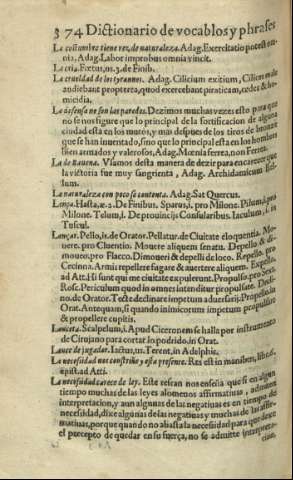 374 Dictionario de vocablos y phrases
La costumbre tiene vez de naturaleza. Adag. Exercitatio potest om-
nia, Adag. Labor improbus omnia vincit.
La cria. Fœtus, us. 3. de Finib.
La crueldad de los tyrannos. Adag. Cilicium exitium, Cilices male
audiebant propterea, quod exercebant piraticam, cædes & ho-
micidia.
La defensa no son las paredes. Dezimos muchas vezes esto para que
no se nos figure que lo principal de la fortificacion de alguna
ciudad esta en los muros, y mas despues de los tiros de bronze
que se han inuentado, sino que lo principal esta en los hombres
bien armados y valerosos, Adag. Mœnia ferrea, non
La de Rauena. Vsamos desta manera de dezir para encarecer que
la victoria fue muy sangrienta, Adag. Archidamicum bel-
lum.
La naturaleza con poco se contenta. Adag. Sat Quercus.
Lança. Hasta, æ. 2. De Finibus. Sparus, i. pro Milone. Pilum, i. pro
Milone. Telum, i. De prouincijs Consularibus. Iaculum, i. in
Tuscul.
Lançar. Pello, is. de Orator. Pellatur. de Ciuitate eloquentia. Mo-
uere. pro Cluentio. Mouere aliquem senatu. Depello & di-
moueo, pro Flacco. Dimoueri & depelli de loco. Repello. pro
Cecinna. Armis repellere fugare & auertere aliquem. Expello.
ad Att. Hi sunt qui me ciuitate expulerunt. Propulso. pro Sexto
Rosc. Periculum quod in omnes intenditur propulsare. Declino.
no. de Orator. Tecte declinare impetum aduersarij. Propello. in
Orat. Antequam, si quando inimicorum impetum propulsare
& propellere cupitis.
Lanceta. Scalpelum, i. Apud Ciceronem se halla por instrumento
de Cirujano para cortar lo podrido. in Orat.
Lance de jugador. Iactus, us. Terent. in Adelphis.
La necesidad nos constriñe y està presente. Res est in manibus, libr. 6.
epist. ad Atti.
La necesidad carece de ley. Este refran nos enseña que si en algun
tiempo muchas de las leyes alomenos affirmatiuas, admiten
interpretacion, y aun algunas de las negatiuas es en tiempo de
necesidad, dixe algunas de las negatiuas y muchas de las affir-
matiuas, porque quando no ai hasta la necesidad para que dexe
el precepto de quedar en su fuerça, no se admite interpreta-
cion,